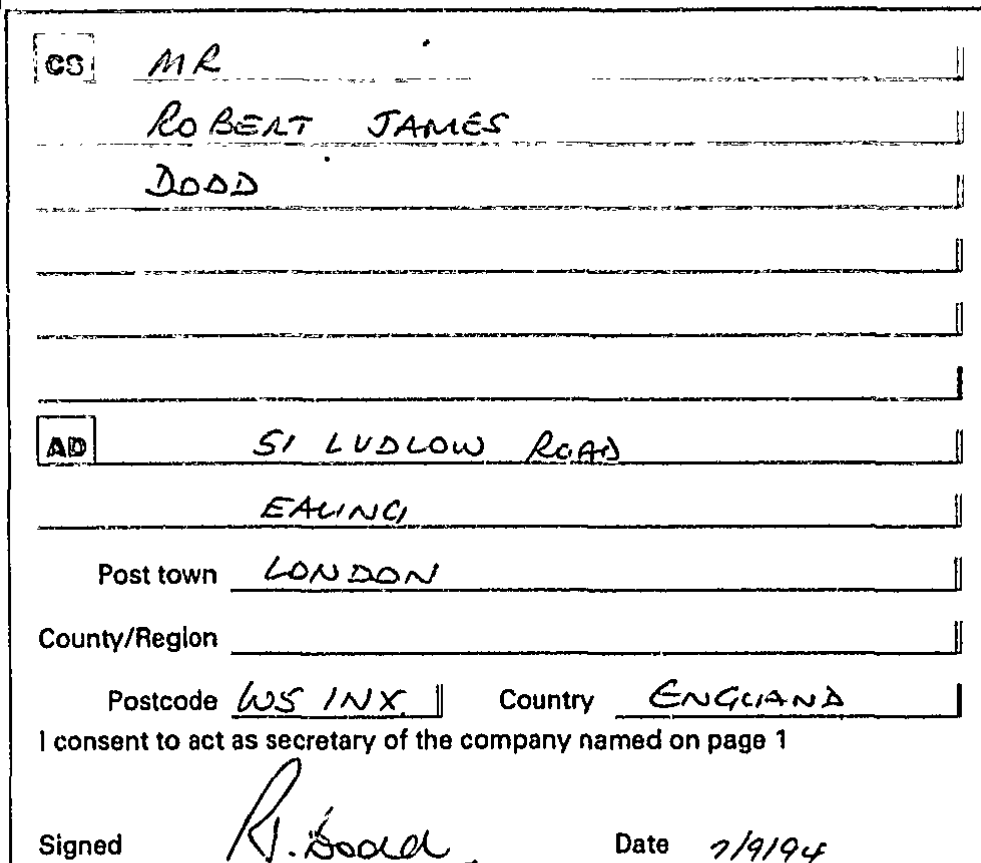 CS MR
ROBERT JAMES
DODD
AD 51 LUDLOW ROAD
EALING
Post town LONDON
County/Region
Postcode W5 1NX Country ENGLAND
I consent to act as secretary of the company named on page 1
Signed R.J. Dodd Date 7/9/94